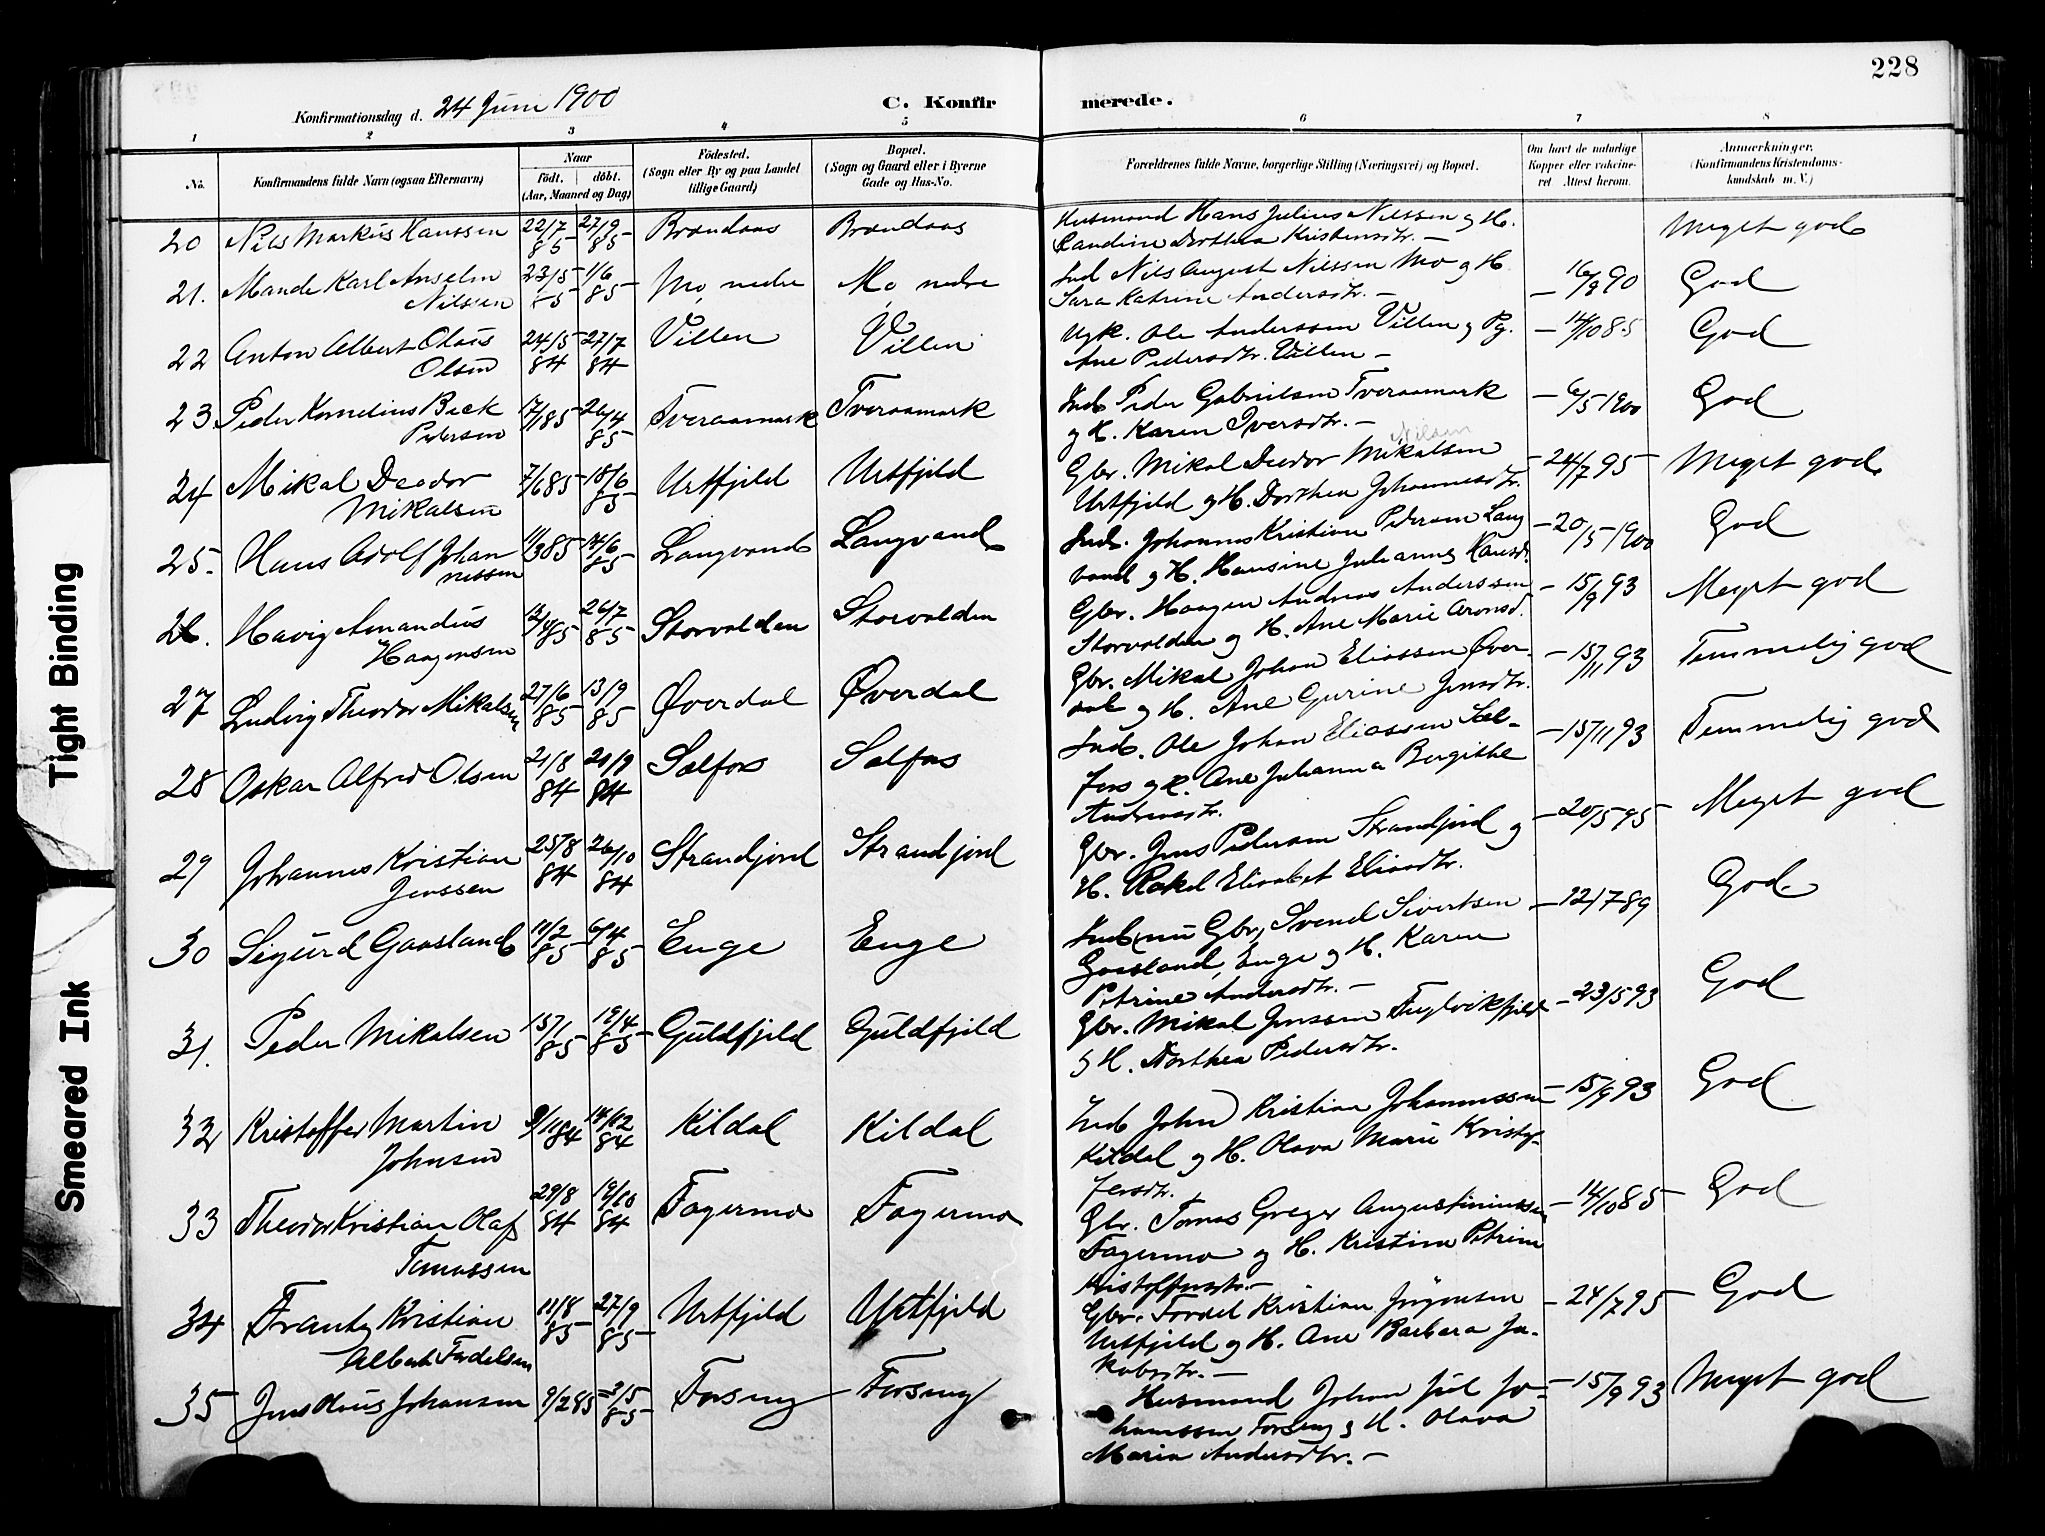 228
Konfirmationsdag d. 24 Juni 1900
C. Konfirmerede.
1 2 3 4 5 6 7 8
No.
Konfirmandens fulde Navn (ogsaa Efternavn)
Naar
födt. döbt.
(Aar, Maaned og Dag)
Födested.
(Sogn eller By og paa Landet
tillige Gaard)
Bopæl.
(Sogn og Gaard eller i Byerne
Gade og Hus-No.
Forældrenes fulde Navne, borgerlige Stilling (Næringsvei) og Bopæl.
Om havt de naturlige
Kopper eller vaccineret
Attest herom.
Anmærkninger.
(Konfirmandens Kristendomskundskab
m. V.)
20 Nils Markus Hanssen 22/7 85 27/9 85 Brandaas Brandaas Husmand Hans Julius Nilssen og H. Meget god
Randine Dorthea Kristensdtr. —
21. Mande Karl Anselm 23/5 85 1/6 85 Mo, nedre Mo, nedre Ind Nils August Nilssen Mo og H — 16/9 90 God
Nilsen Sara Katrine Andersdtr. —
22 Anton Albert Olaus 24/5 84 27/7 84 Villen Villen Ugk. Ole Anderssen Villen og Pg. — 14/10 85 God
Olsen Ane Pedersdtr. Villen —
23. Peder Kornelius Beck 17/1 85 26/4 85 Tveraamark Tveraamark Ind Peder Gabrielsen Tveraamark — 6/5 1900 God
Pedersen og H. Karen Iversdtr. —
Nilsen
24 Mikal Deodor 7/6 85 18/6 85 Urtfjeld Urtfjeld Gbr. Mikal Deodor Mikalsen — 24/7 95 Meget god
Mikalsen Urtfjeld og H. Dorthea Johannesdtr.
25. Hans Adolf Johannessen 11/3 85 14/6 85 Langvand Langvand Ind. Johannes Kristian Pedersen Lang — 20/5 1900 God
vand og H. Hansine Julianna Hansdt.
26. Havig Amandus 12/4 85 26/7 85 Storvolden Storvolden Gbr. Haagen Andreas Anderssen — 15/9 93 Meget god
Haagensen Storvolden og H. Ane Marie Aronsd.
27 Ludvig Theodor Mikalsen 27/6 85 13/9 85 Øverdal Øverdal Gbr. Mikal Johan Eliassen Øver- — 15/11 93 Temmelig god
dal og H. Ane Gurine Jensdtr.
28 Oskar Alfred Olsen 21/8 84 21/9 84 Selfors Selfors Ind. Ole Johan Eliassen Sel- — 15/11 93 Temmelig god
fors og H. Ane Johanna Bergithe
Andreasdtr.
29 Johannes Kristian 25/8 84 26/10 84 Strandjord Strandjord Gbr. Jens Pedersen Strandjord og — 20/5 95 Meget god
Jenssen H. Rakel Elisabet Eliasdtr.
30 Sigurd Gaasland 11/2 85 6/4 85 Enge Enge Ind. nu Gbr, Svend Sivertsen — 12/7 89 God
Gaasland, Enge og H. Karen
Petrine Andersdtr. —
31. Peder Mikalsen 15/1 85 12/4 85 Guldfjeld Guldfjeld Gbr. Mikal Jenssen Fuglvikfjeld — 23/5 93 God
og H. Dorthea Pedersdtr.
32 Kristoffer Martin 9/11 84 14/12 84 Kildal Kildal Ind John Kristian Johannessen — 15/9 93 God
Johnsen Kildal og H. Olava Marie Kristof-
fersdtr.
33 Theodor Kristian Olaf 29/8 84 19/10 84 Fagermo Fagermo Gbr. Tomas Greger Augustinussen — 14/10 85 God
Tomassen Fagermo og H. Kristine Petrine
Kristoffersdtr. —
34 Frantz Kristian 11/8 85 27/9 85 Urtfjeld Urtfjeld Gbr. Fordel Kristian Jörgensen — 24/7 95 God
Albert Fordelsen Urtfjeld og H. Ane Barbara Ja-
kobsdtr. —
35 Jens Klaus Johansen 9/2 85 3/5 85 Forsmo Forsmo Husmand Johan Jul Jo- — 15/9 93 Meget god
hannessen og H. Olava
Maria Andersdtr. —
Tight Binding
Smeared Ink